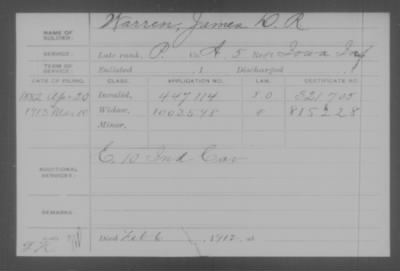 NAME OF SOLDIER: Warren, James D. R
SERVICE: Late rank, P. Co. A, 5 Reg't Iowa Inf
TERM OF SERVICE: Enlisted 1 Discharged 1
DATE OF FILING. CLASS. APPLICATION NO. LAW. CERTIFICATE NO.
1882 Apr 20 Invalid, 447114 321705
1912 Mar 18 Widow, 1003548 815228
Minor,
ADDITIONAL SERVICES: E 10 Ind Cav
REMARKS:
Died Feb 6, 1912, at